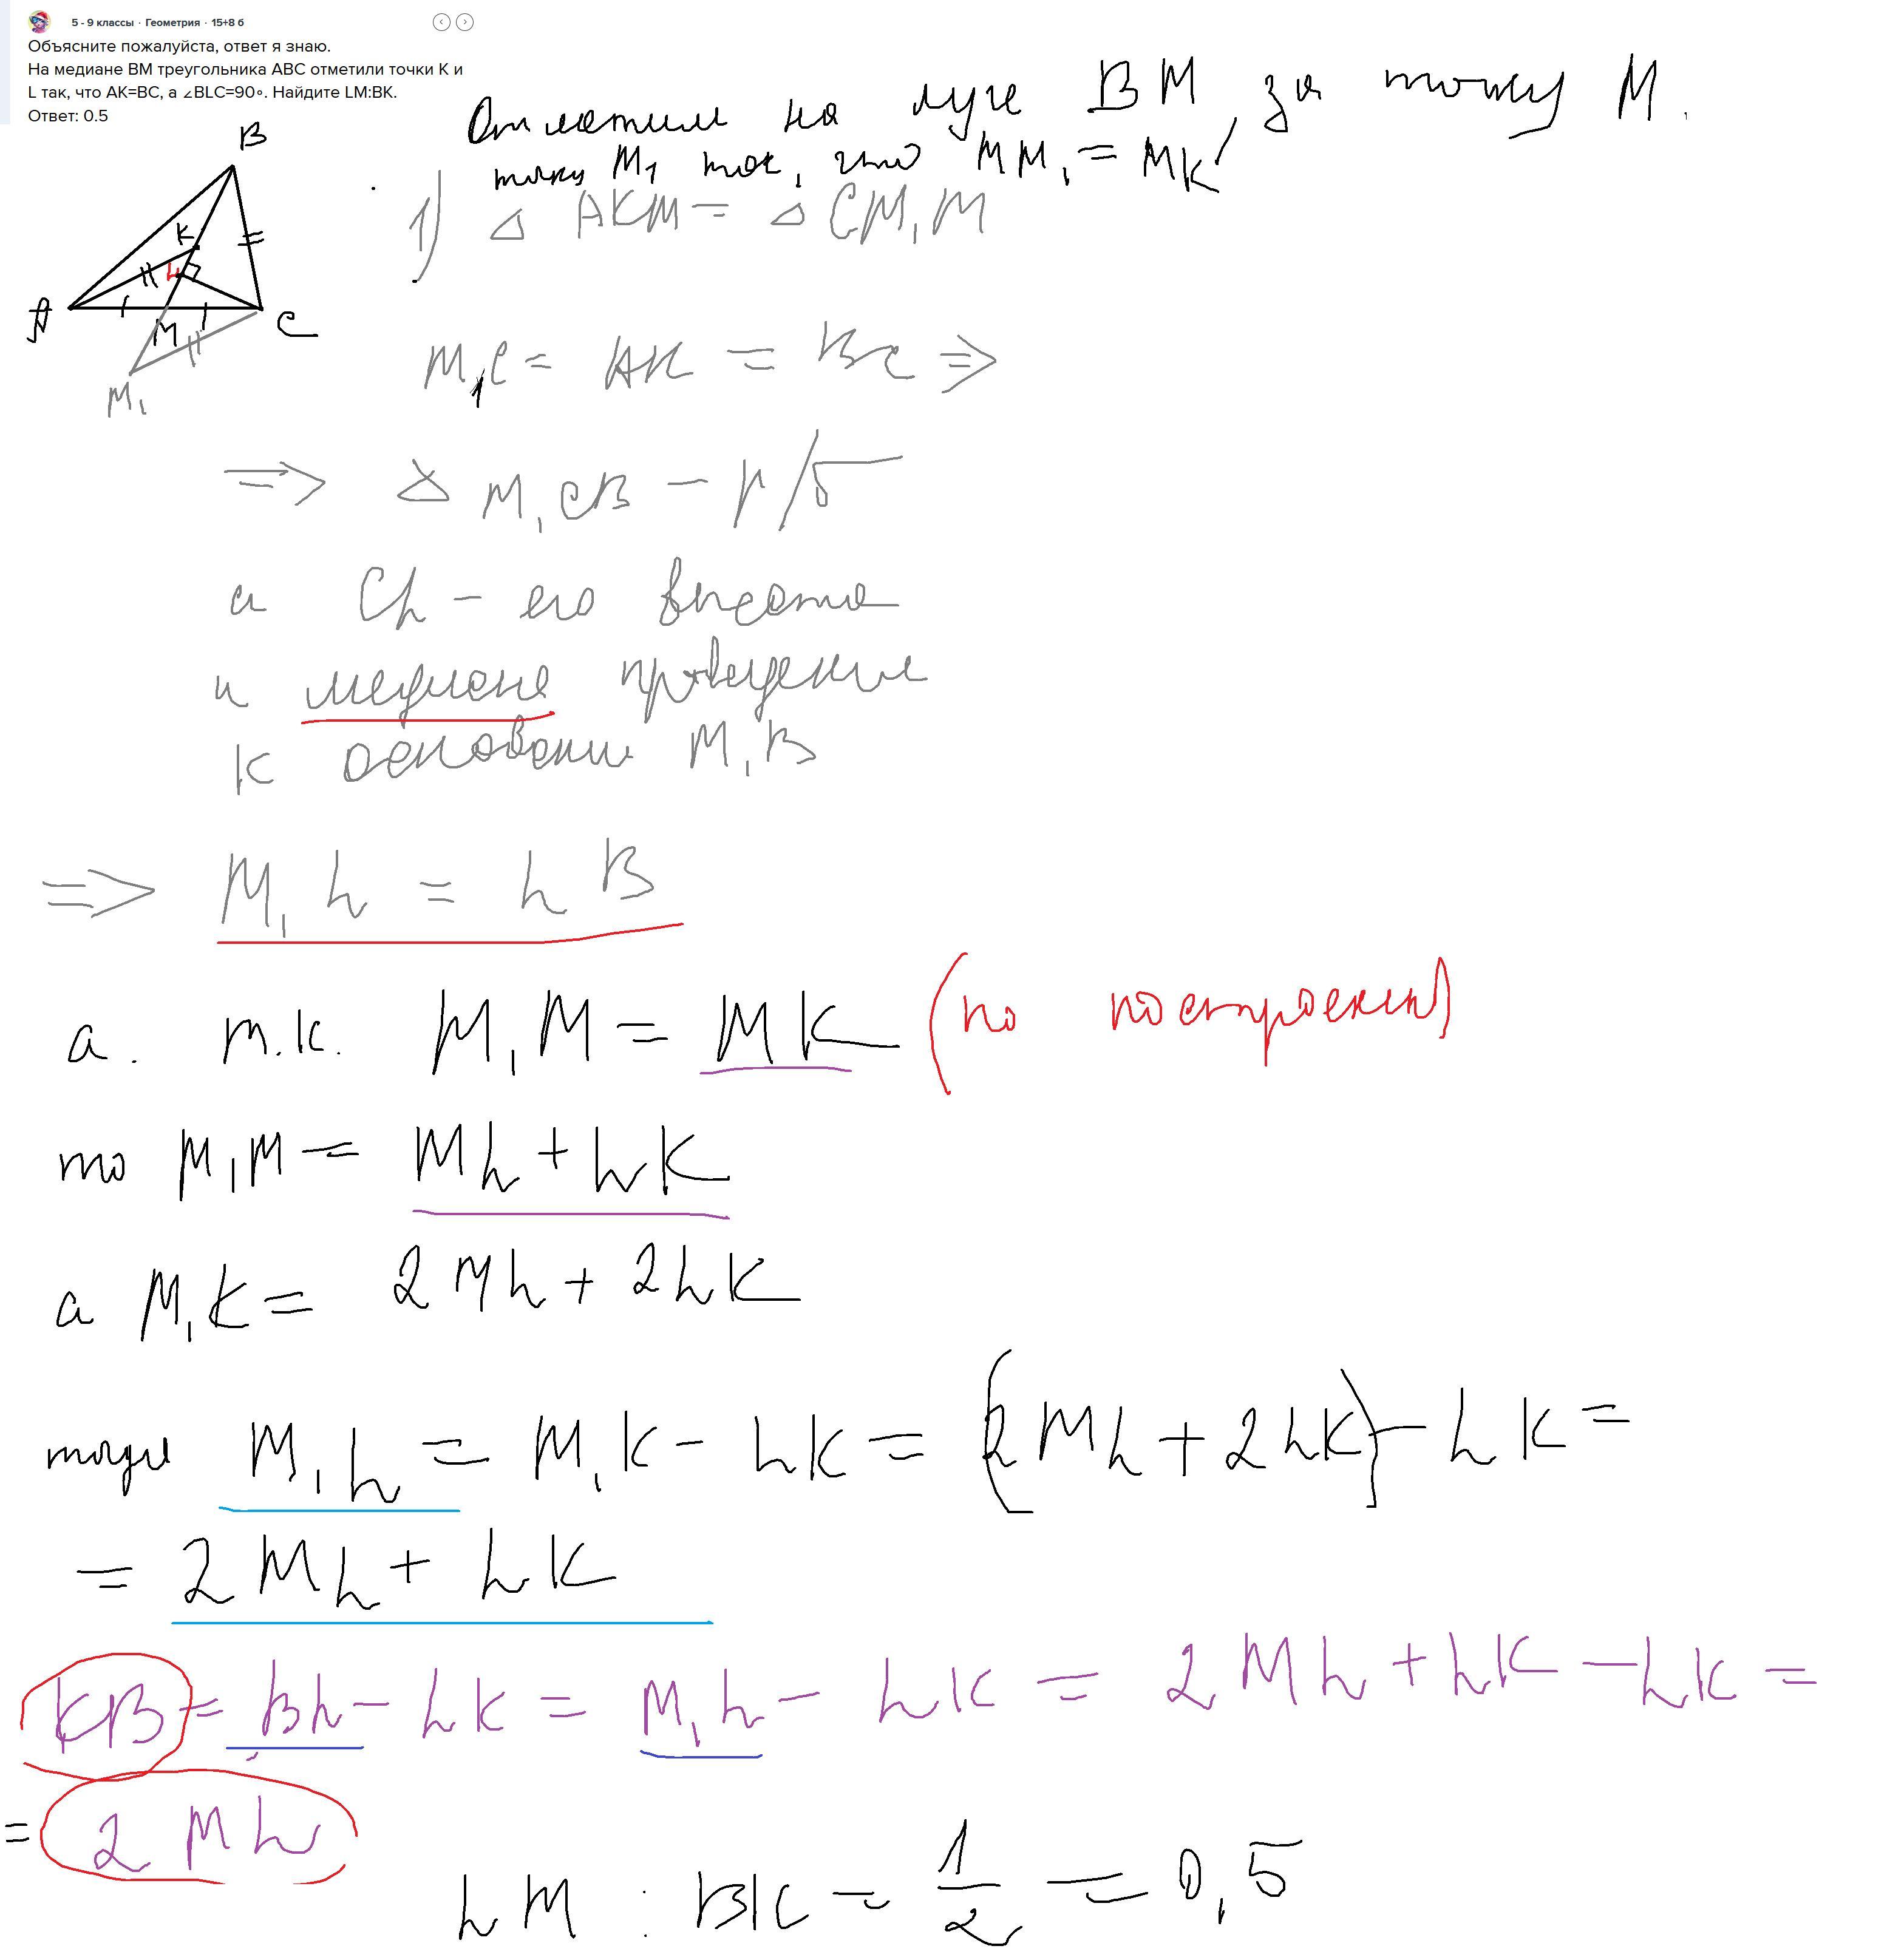 5 - 9 классы · Геометрия · 15+8 б
Объясните пожалуйста, ответ я знаю.
На медиане BM треугольника ABC отметили точки K и
L так, что AK=BC, а ∠BLC=90∘. Найдите LM:BK.
Ответ: 0.5
Отметим на луче BM, за точку M.
точку M₁ так, что MM₁ = MK
B
K
L
A
M
C
M₁
1) △ AKM = △ CM₁M
M₁C = AK = BC ⇒
⇒ △ M₁CB - р/б
а CL - его высота
и медиана проведеная
к основанию M₁B
⇒ M₁L = LB
а. т.к. M₁M = MK (по построению)
то M₁M = ML + LK
а M₁K = 2ML + 2LK
тогда M₁L = M₁K - LK = (2ML + 2LK) - LK =
= 2ML + LK
KB = BL - LK = M₁L - LK = 2ML + LK - LK =
= 2ML
LM : BK = 1/2 = 0,5